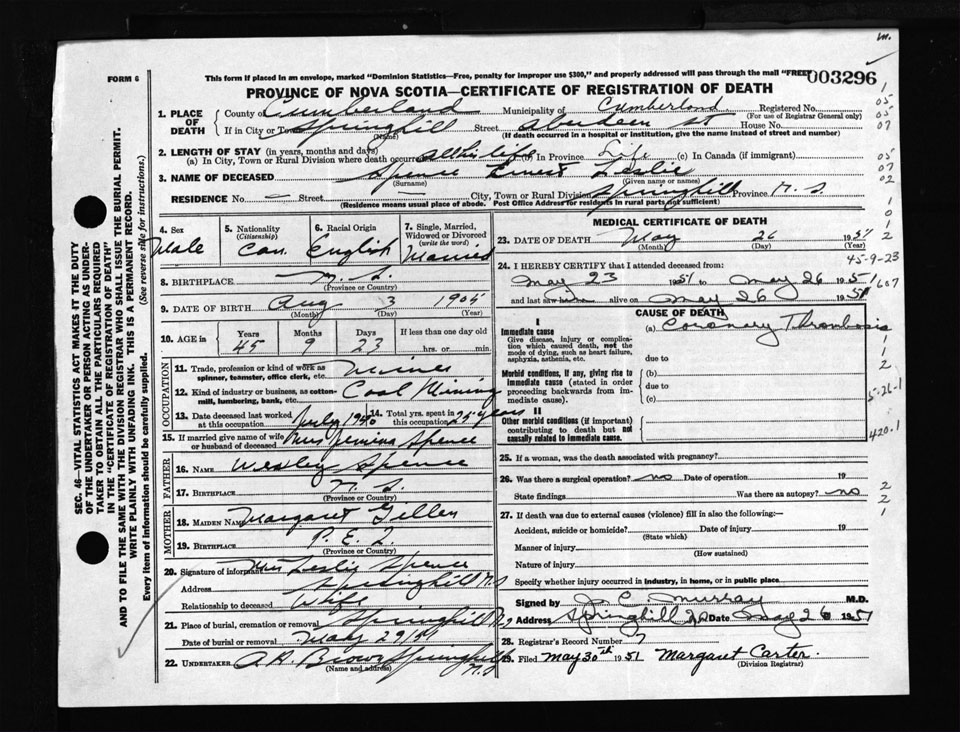 m.
FORM 6
This form if placed in an envelope, marked "Dominion Statistics—Free, penalty for improper use $300," and properly addressed will pass through the mail "FREE"
003296
PROVINCE OF NOVA SCOTIA—CERTIFICATE OF REGISTRATION OF DEATH
1. PLACE OF DEATH
County of Cumberland Municipality of Cumberland Registered No.
(For use of Registrar General only)
If in City or Town Springhill Street Aberdeen St House No.
(Name) (If death occurred in a hospital or institution, give the name instead of street and number)
2. LENGTH OF STAY (in years, months and days)
(a) In City, Town or Rural Division where death occurred All his life (b) In Province Life (c) In Canada (if immigrant)
3. NAME OF DECEASED Spence Ernest Leslie
(Surname) (Given name or names)
RESIDENCE No. — Street City, Town or Rural Division Springhill Province N. S.
(Residence means usual place of abode. Post Office Address for residents in rural parts not sufficient)
4. Sex Male
5. Nationality (Citizenship) Can.
6. Racial Origin English
7. Single, Married, Widowed or Divorced (write the word) Married
8. BIRTHPLACE N. S.
(Province or Country)
9. DATE OF BIRTH Aug 3 1905
(Month) (Day) (Year)
10. AGE in Years 45 Months 9 Days 23 If less than one day old
hrs. or min.
OCCUPATION
11. Trade, profession or kind of work as spinner, teamster, office clerk, etc. Miner
12. Kind of industry or business, as cotton-mill, lumbering, bank, etc. Coal Mining
13. Date deceased last worked at this occupation July 1950
14. Total yrs. spent in this occupation 25 years
15. If married give name of wife or husband of deceased Mrs Jemima Spence
FATHER
16. NAME Wesley Spence
17. BIRTHPLACE N. S.
(Province or Country)
MOTHER
18. MAIDEN NAME Margaret Gillen
19. BIRTHPLACE P. E. I.
(Province or Country)
20. Signature of informant Mrs Leslie Spence
Address Springhill N S
Relationship to deceased Wife
21. Place of burial, cremation or removal Springhill N S
Date of burial or removal May 29/51
22. UNDERTAKER A. R. Brown Springhill N. S
(Name and address)
MEDICAL CERTIFICATE OF DEATH
23. DATE OF DEATH May 26 1951
(Month) (Day) (Year)
24. I HEREBY CERTIFY that I attended deceased from:
May 23 1951 to May 26 1951
and last saw him alive on May 26 1951
CAUSE OF DEATH
I
Immediate cause
Give disease, injury or complication which caused death, not the mode of dying, such as heart failure, asphyxia, asthenia, etc.
(a) Coronary Thrombosis
due to
Morbid conditions, if any, giving rise to immediate cause (stated in order proceeding backwards from immediate cause).
(b)
due to
(c)
II
Other morbid conditions (if important) contributing to death but not causally related to immediate cause.
25. If a woman, was the death associated with pregnancy?
26. Was there a surgical operation? no Date of operation 19
State findings Was there an autopsy? no
27. If death was due to external causes (violence) fill in also the following:—
Accident, suicide or homicide? Date of injury 19
(State which)
Manner of injury
(How sustained)
Nature of injury
Specify whether injury occurred in industry, in home, or in public place
Signed by J. C. Murray M.D.
Address Springhill NS Date May 26 1951
28. Registrar's Record Number 7
29. Filed May 30th 1951 Margaret Carter.
(Division Registrar)
1
05
05
07
05
07
02
1
0
1
2
45-9-23
607
1
1
2
5-26-1
420.1
2
2
1
SEC. 46—VITAL STATISTICS ACT MAKES IT THE DUTY
OF THE UNDERTAKER OR PERSON ACTING AS UNDERTAKER TO OBTAIN ALL THE PARTICULARS REQUIRED
IN THE "CERTIFICATE OF REGISTRATION OF DEATH"
AND TO FILE THE SAME WITH THE DIVISION REGISTRAR WHO SHALL ISSUE THE BURIAL PERMIT.
WRITE PLAINLY WITH UNFADING INK. THIS IS A PERMANENT RECORD.
Every item of information should be carefully supplied. (See reverse side for instructions.)